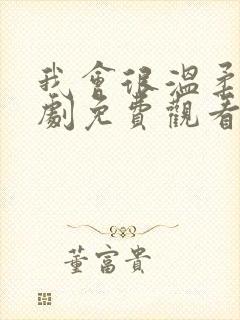 我會很溫柔
劇免費觀看
董富貴